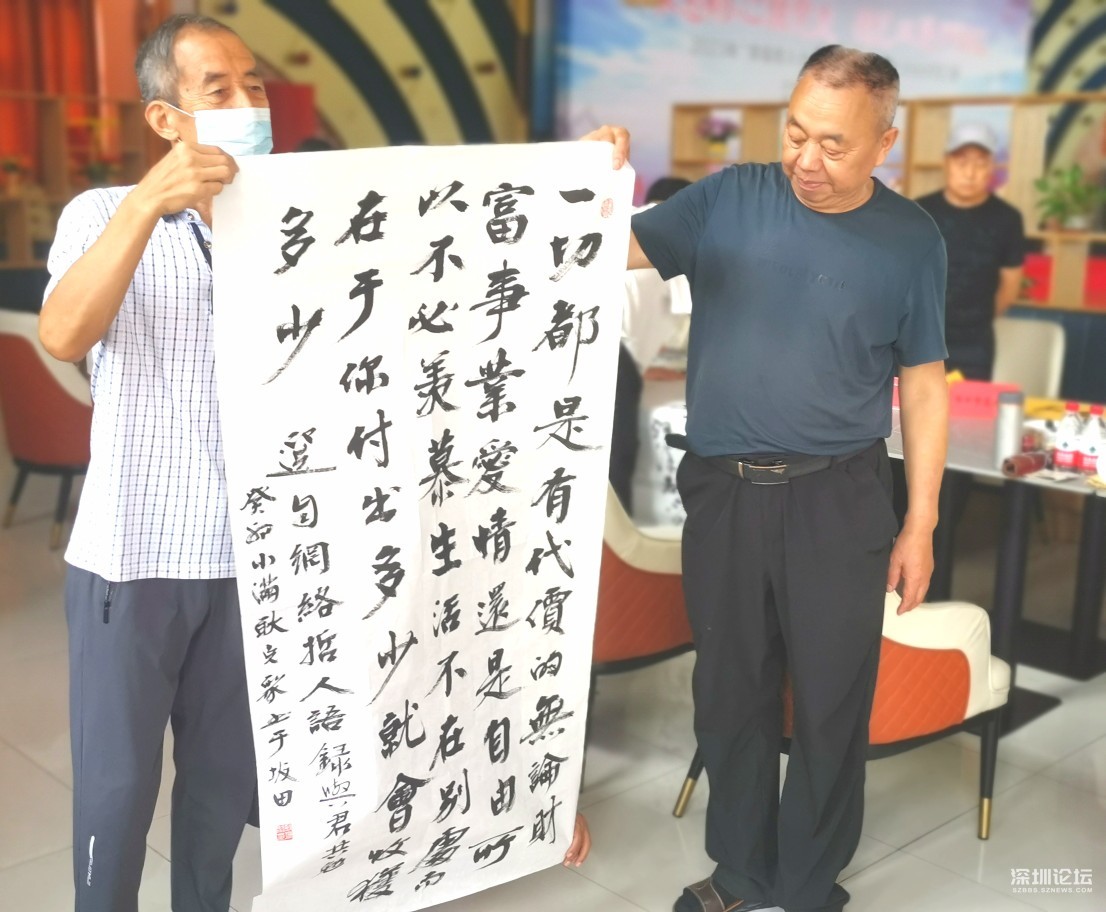 一切都是有代價的無論財
富事業愛情還是自由所
以不必羡慕生活不在别處而
在于你付出多少就會收獲
多少
選自網絡哲人語録與君共勉
癸卯小滿耿文家書于坂田
深圳论坛
SZBBS.SZNEWS.COM